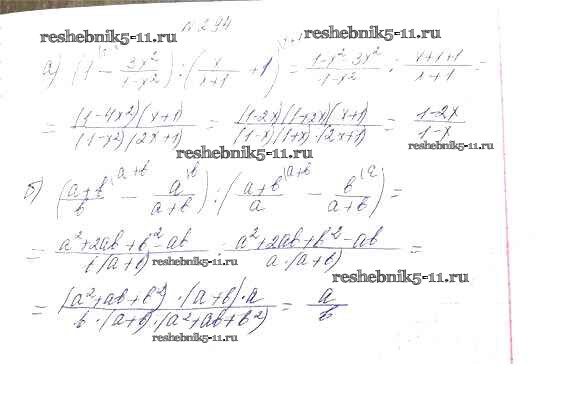 №294
reshebnik5-11.ru reshebnik5-11.ru
а) (1 - 3x²/(1-x²)) : (x/(x+1) + 1) = (1-x²-3x²)/(1-x²) : (x+x+1)/(x+1) =
= (1-4x²)(x+1)/((1-x²)(2x+1)) = (1-2x)(1+2x)(x+1)/((1-x)(1+x)·(2x+1)) = (1-2x)/(1-x)
reshebnik5-11.ru
reshebnik5-11.ru
б) ((a+b)/b - a/(a+b)) : ((a+b)/a - b/(a+b)) =
= (a²+2ab+b²-ab)/(b(a+b)) : (a²+2ab+b²-ab)/(a·(a+b)) =
reshebnik5-11.ru
reshebnik5-11.ru
= (a²+ab+b²)·(a+b)·a/(b·(a+b)·(a²+ab+b²)) = a/b
reshebnik5-11.ru
reshebnik5-11.ru